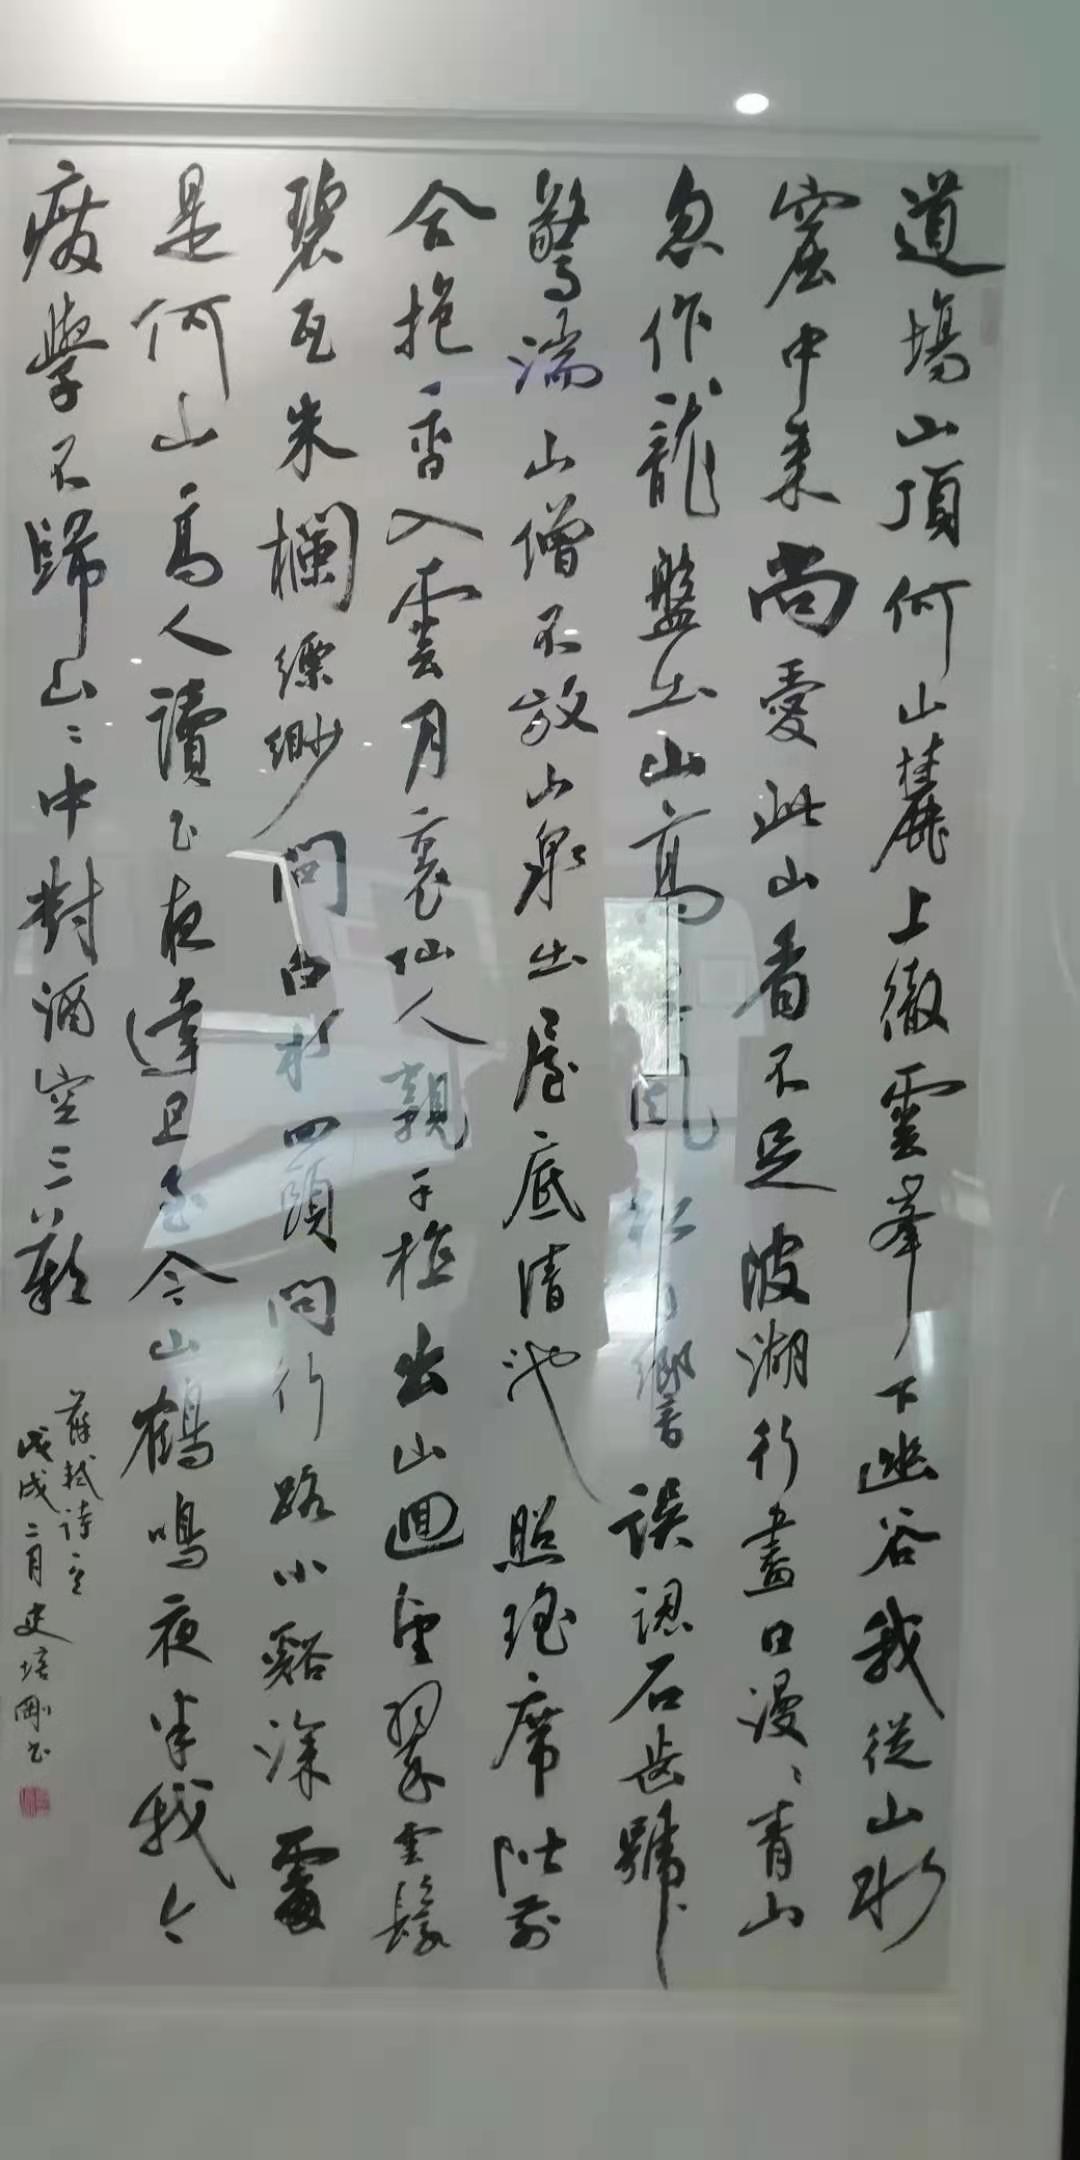 道場山頂何山麓上徹雲峯下幽谷我從山水
窟中来尚愛此山看不足陂湖行盡白漫〻青山
忽作龍盤出山高無風松自響誤認石齒號
驚湍山僧不放山泉出屋底清池照瑤席階前
合抱香入雲月裏仙人親手植出山迴望翠雲鬟
碧瓦朱欄縹緲間白水田頭問行路小谿深處
是何山高人讀书夜達旦至今山鶴鳴夜半我今
癈學不歸山〻中對酒空三歎
蘇軾詩
戊戌二月史培剛书